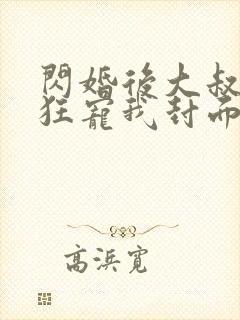 閃婚後大叔
狂寵我封面
高浜寬